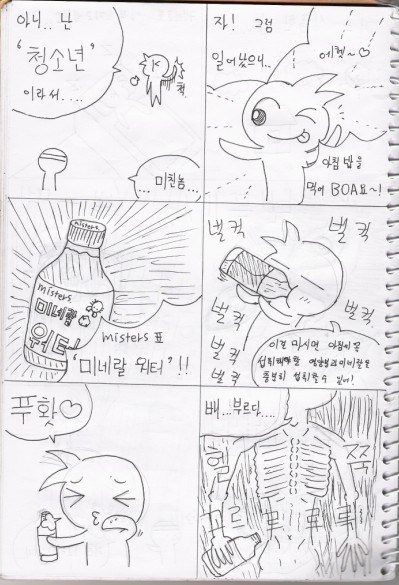 아니.. 난
'청소년'
이라서.....
척.
... 미친놈...
자! 그럼
일어났으니..
에헷~♡
아침 밥을
먹어 BOA요~!
misters
misters
미네랄
워터!
misters 표
"미네랄 워터"!!
벌컥 벌컥
벌컥 벌컥.
벌컥
벌컥
이걸 마시면 아침에 꼭
섭취해야할 영양분과 미네랄을
충분히 섭취할 수 있어!
푸핫♡
배...부르다....
헬쭉
꼬르르르륵